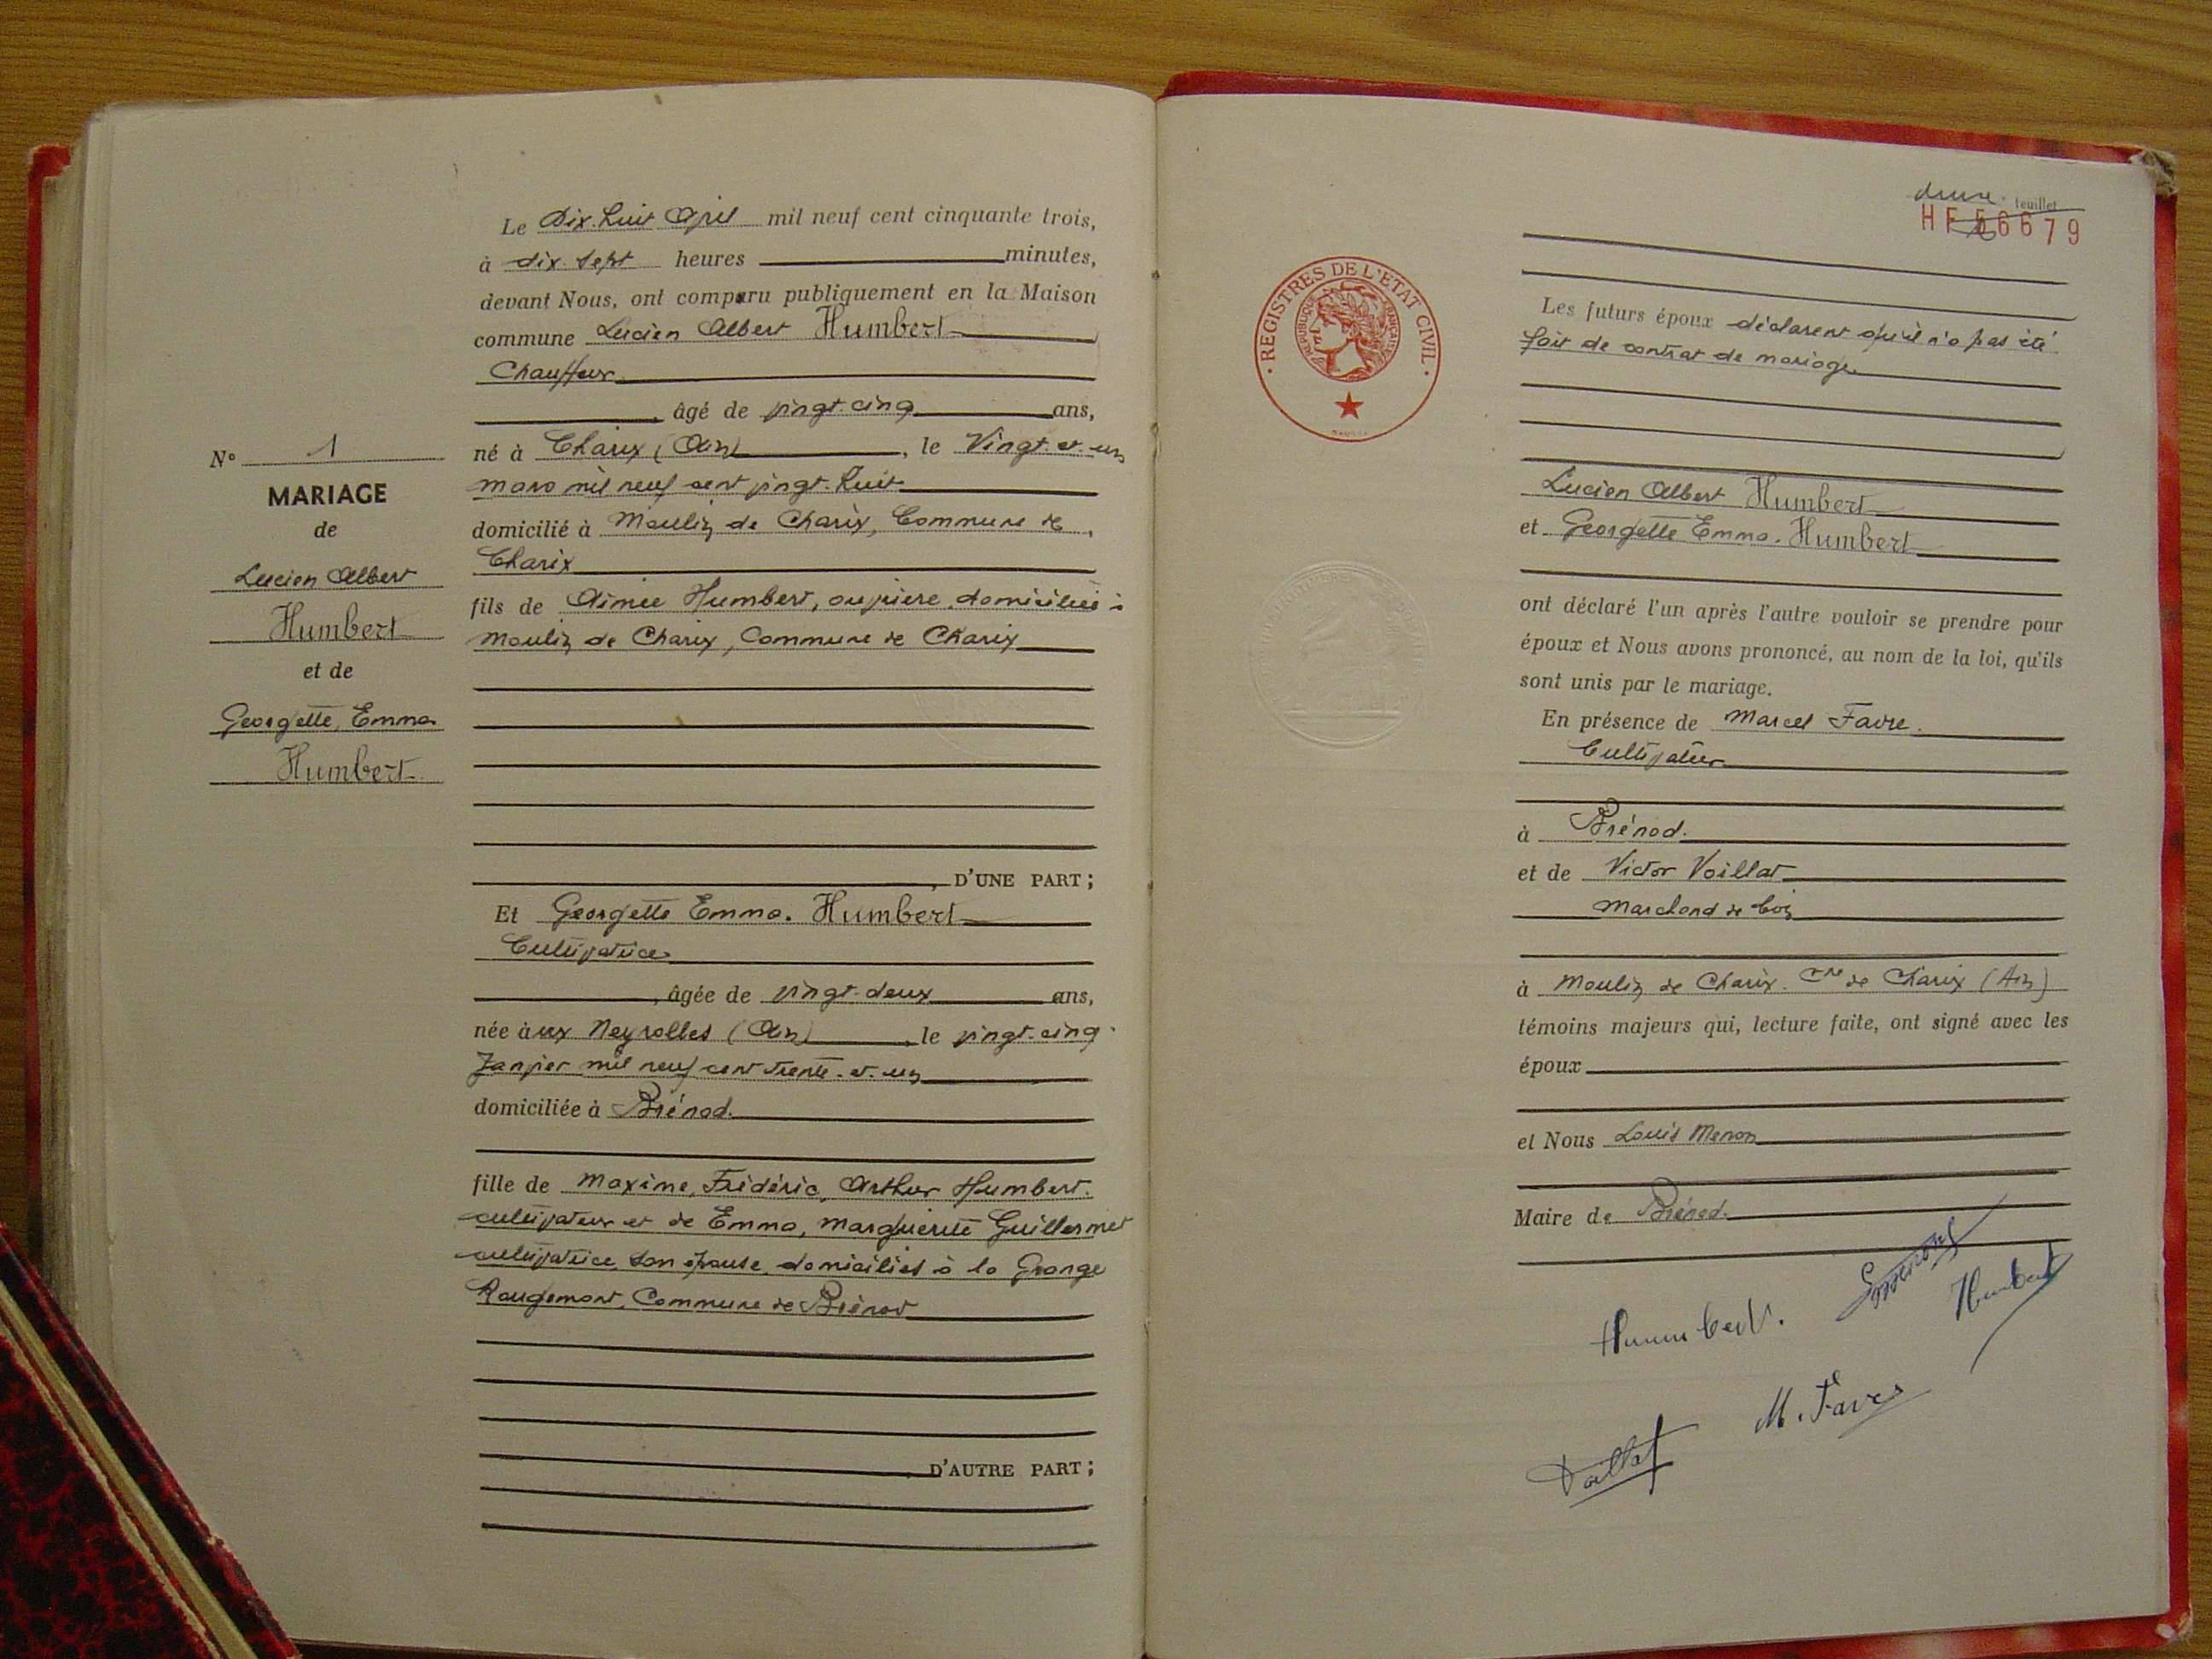 Le Dix huit Avril mil neuf cent cinquante trois,
à dix sept heures minutes,
devant Nous, ont comparu publiquement en la Maison
commune Lucien Albert Humbert
Chauffeur
, âgé de vingt-cinq ans,
né à Charix (Ain) , le Vingt et un
mars mil neuf cent vingt-huit
domicilié à Moulin de Charix, Commune de ,
Charix
fils de Aimée Humbert, ouvrière, domiciliée à
Moulin de Charix, Commune de Charix
, D'UNE PART ;
N° 1
MARIAGE
de
Lucien Albert
Humbert
et de
Georgette, Emma
Humbert
Et Georgette Emma. Humbert
Cultivatrice
, âgée de vingt-deux ans,
née aux Neyrolles (Ain) , le vingt-cinq
Janvier mil neuf cent trente-et-un
domiciliée à Brénod.
fille de Maxime, Frédéric, Arthur Humbert.
cultivateur et de Emma, Marguerite Guillermet
cultivatrice, son épouse, domiciliés à la Grange
Rougemont, Commune de Brénod
, D'AUTRE PART ;
feuillet
HF 56679
REGISTRES DE L'ETAT CIVIL
REPUBLIQUE FRANÇAISE
Les futurs époux déclarent qu'il n'a pas été
fait de contrat de mariage
Lucien Albert Humbert
et Georgette Emma. Humbert
ont déclaré l'un après l'autre vouloir se prendre pour
époux et Nous avons prononcé, au nom de la loi, qu'ils
sont unis par le mariage.
En présence de Marcel Favre.
Cultivateur
à Brénod.
et de Victor Voillat
Marchand de bois
à Moulin de Charix. Cne de Charix (Ain)
témoins majeurs qui, lecture faite, ont signé avec les
époux
et Nous Louis Menon
Maire de Brénod.
Humbert.
Humbert
M. Favre
Voillat